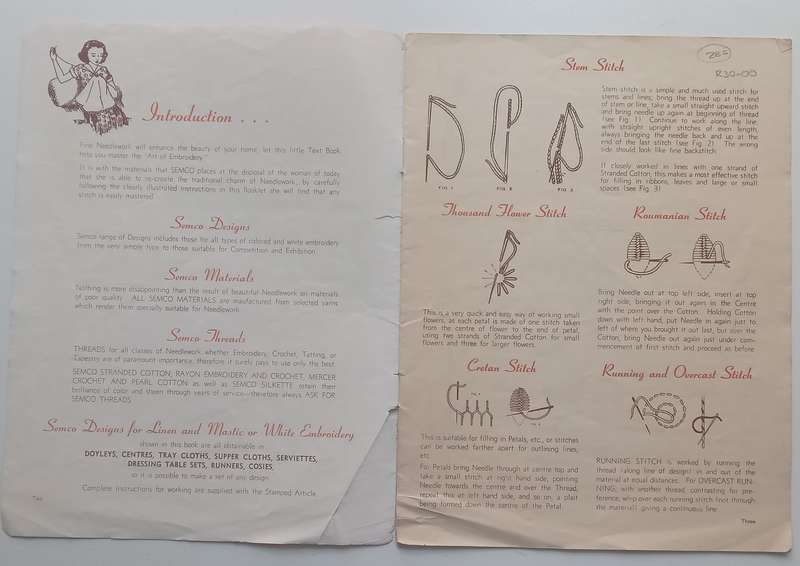 Introduction . . .
Fine Needlework will enhance the beauty of your home, let this little Text Book
help you master the "Art of Embroidery."
It is with the materials that SEMCO places at the disposal of the woman of today
that she is able to re-create the traditional charm of Needlework, by carefully
following the clearly illustrated instructions in this booklet she will find that any
stitch is easily mastered.
Semco Designs
Semco range of Designs includes those for all types of colored and white embroidery
from the very simple type to those suitable for Competition and Exhibition.
Semco Materials
Nothing is more disappointing than the result of beautiful Needlework on materials
of poor quality. ALL SEMCO MATERIALS are manufactured from selected yarns
which render them specially suitable for Needlework.
Semco Threads
THREADS for all classes of Needlework, whether Embroidery, Crochet, Tatting, or
Tapestry are of paramount importance, therefore it surely pays to use only the best.
SEMCO STRANDED COTTON, RAYON EMBROIDERY AND CROCHET, MERCER
CROCHET AND PEARL COTTON as well as SEMCO SILKETTE retain their
brilliance of color and sheen through years of service—therefore always ASK FOR
SEMCO THREADS.
Semco Designs for Linen and Mastic or White Embroidery
shown in this book are all obtainable in
DOYLEYS, CENTRES, TRAY CLOTHS, SUPPER CLOTHS, SERVIETTES,
DRESSING TABLE SETS, RUNNERS, COSIES,
so it is possible to make a set of any design.
Complete instructions for working are supplied with the Stamped Article.
Two
285
R30-00
Stem Stitch
Stem stitch is a simple and much used stitch for
stems and lines; bring the thread up at the end
of stem or line, take a small straight upward stitch
and bring needle up again at beginning of thread
(see Fig. 1). Continue to work along the line,
with straight upright stitches of even length,
always bringing the needle back and up at the
end of the last stitch (see Fig. 2). The wrong
side should look like fine backstitch.
If closely worked in lines with one strand of
Stranded Cotton, this makes a most effective stitch
for filling in ribbons, leaves and large or small
spaces (see Fig. 3).
FIG. 1
FIG. 2
FIG. 3
Thousand Flower Stitch
This is a very quick and easy way of working small
flowers, as each petal is made of one stitch taken
from the centre of flower to the end of petal,
using two strands of Stranded Cotton for small
flowers and three for larger flowers.
Roumanian Stitch
Bring Needle out at top left side, insert at top
right side, bringing it out again in the Centre
with the point over the Cotton. Holding Cotton
down with left hand, put Needle in again just to
left of where you brought it out last, but over the
Cotton, bring Needle out again just under com-
mencement of first stitch and proceed as before.
Cretan Stitch
This is suitable for filling in Petals, etc., or stitches
can be worked farther apart for outlining lines,
etc.
For Petals bring Needle through at centre top and
take a small stitch at right hand side, pointing
Needle towards the centre and over the Thread,
repeat this at left hand side, and so on, a plait
being formed down the centre of the Petal.
Running and Overcast Stitch
RUNNING STITCH is worked by running the
thread along line of design, in and out of the
material at equal distances. For OVERCAST RUN-
NING, with another thread, contrasting for pre-
ference, whip over each running stitch (not through
the material) giving a continuous line.
Three